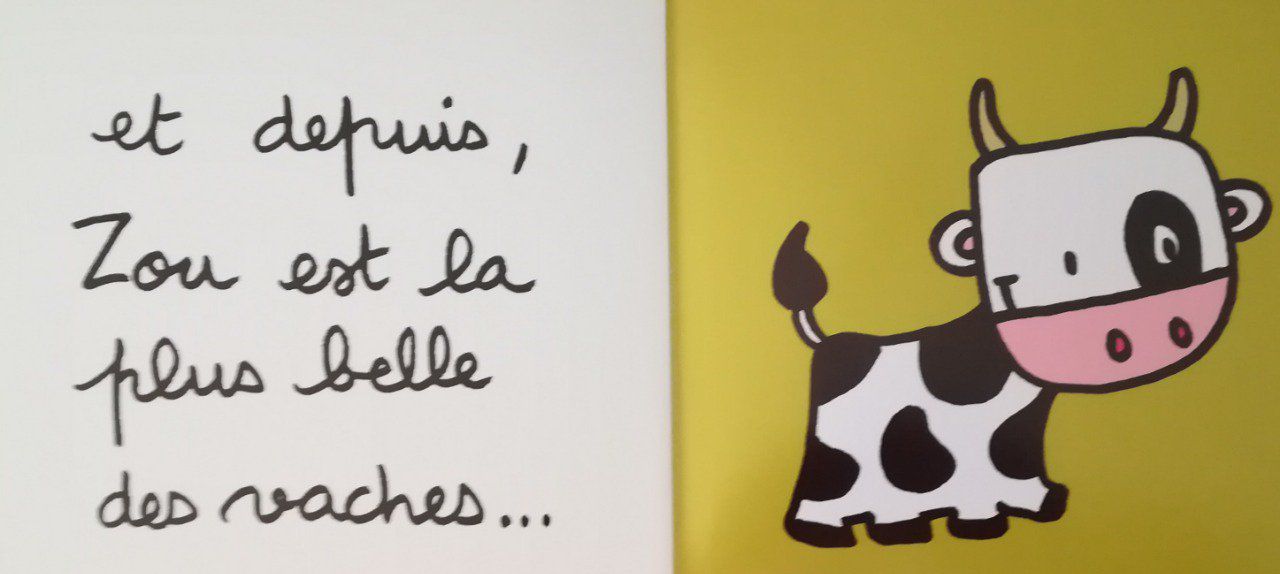 et depuis,
Zou est la
plus belle
des vaches...